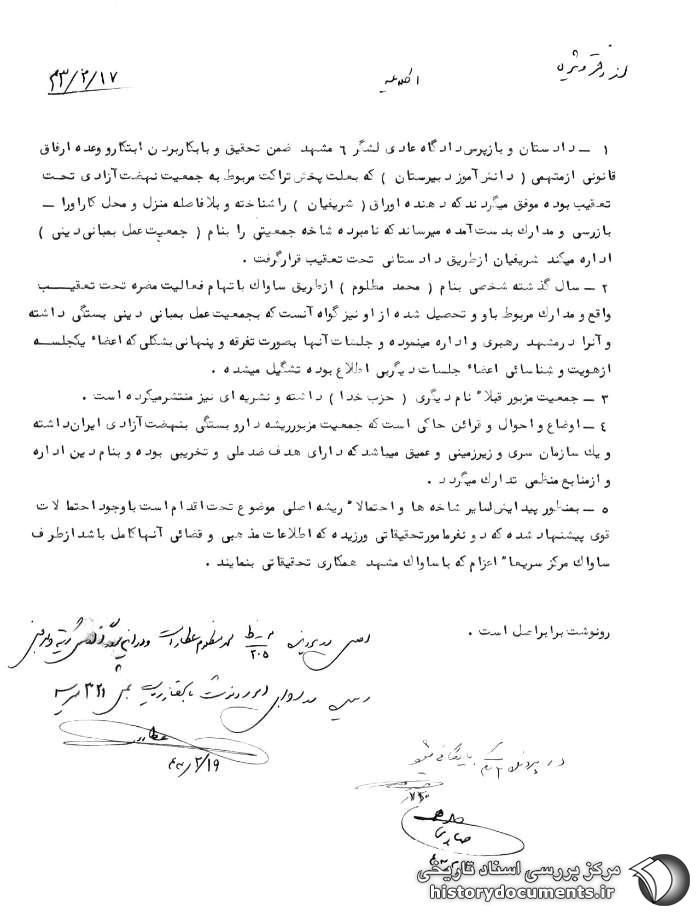 از دفتر ویژه
اطلاعیه
۴۳/۲/۱۷
۱ ــ دادستان و بازپرس دادگاه عادی لشگر ۶ مشهد ضمن تحقیق و بابکاربردن ابتکار و وعده ارفاق
قانونی ازمتهمی ( دانش آموز دبیرستان ) که بعلت پخش تراکت مربوط به جمعیت نهضت آزادی تحت
تعقیب بوده موفق میگردند که دهنده اوراق ( شریفیان ) را شناخته و بلافاصله منزل و محل کار او را ــ
بازرسی و مدارک بدست آمده میرساند که نامبرده شاخه جمعیتی را بنام ( جمعیت عمل بمبانی دینی )
اداره میکند شریفیان ازطریق دادستانی تحت تعقیب قرارگرفت .
۲ ــ سال گذشته شخصی بنام ( محمد مظلوم ) ازطریق ساواک باتهام فعالیت مضره تحت تعقیـــب
واقع و مدارک مربوط باو و تحصیل شده از او نیز گواه آنست که بجمعیت عمل بمبانی دینی بستگی داشته
و آنرا درمشهد رهبری و اداره مینموده و جلسات آنها بصورت تفرقه و پنهانی بشکلی که اعضاء یکجلســه
ازهویت و شناسائی اعضاء جلسات دیگر بی اطلاع بوده تشگیل میشده .
۳ ــ جمعیت مزبور قبلا" نام دیگری ( حزب خدا ) داشته و نشریه ای نیز منتشر میکرده است .
۴ ــ اوضاع و احوال و قرائن حاکی است که جمعیت مزبور ریشه دار و بستگی بنهضت آزادی ایران داشته
و یک سازمان سری و زیرزمینی و عمیق میباشد که دارای هدف ضد ملی و تخریبی بوده و بنام دین اداره
و ازمنابع منظمی تدارک میگردد .
۵ ــ بمنظور پیدایش سایر شاخه ها و احتمالا" ریشه اصلی موضوع تحت اقدام است باوجود احتمالات
قوی پیشنهاد شده که دو نفر مامور تحقیقاتی ورزیده که اطلاعات مذهبی و قضائی آنها کامل باشد ازطرف
ساواک مرکز سریعا" اعزام که با ساواک مشهد همکاری تحقیقاتی بنمایند .
رونوشت برابر اصل است .
اصل در پرونده محمد مظلوم عطار است
۲۰۵
۳۲۱
عطار
۴۳/۲/۱۹
در پرونده بایگانی شود
صابری
مرکز بررسی اسناد تاریخی
historydocuments.ir